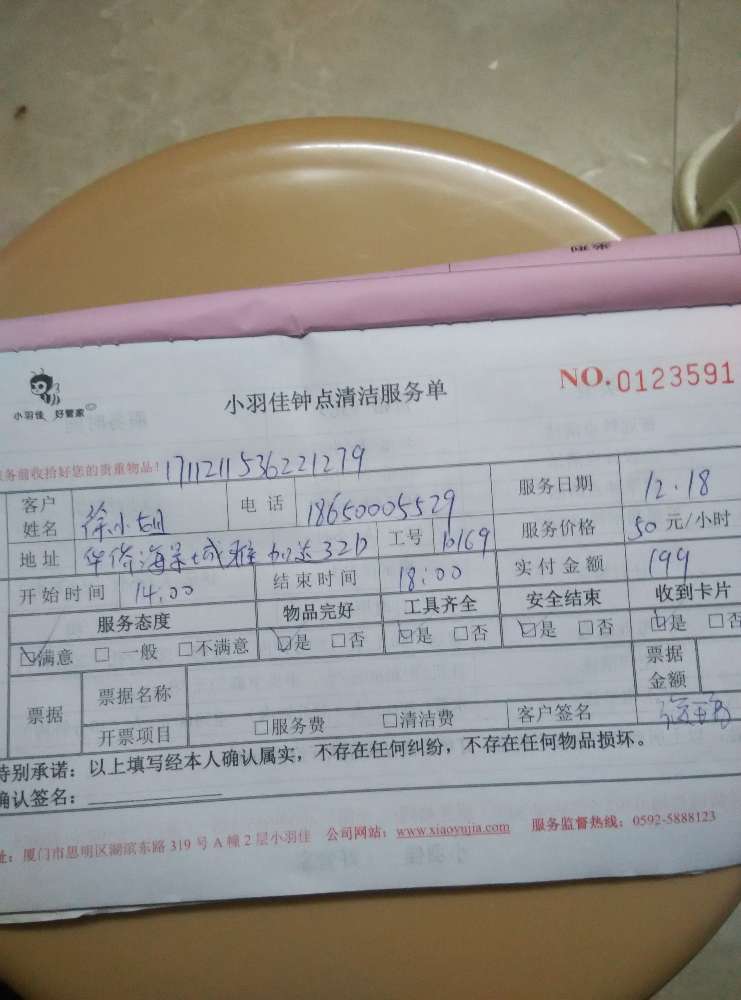 小羽佳 好管家
小羽佳钟点清洁服务单
NO.0123591
务前收拾好您的贵重物品! 1711211536221279
客户姓名 徐小姐 电话 18650005529 服务日期 12.18
地址 华侨海景城雅加达32D 工号 10169 服务价格 50 元/小时
开始时间 14:00 结束时间 18:00 实付金额 199
服务态度 物品完好 工具齐全 安全结束 收到卡片
☑满意 □ 一般 □不满意 ☑是 □否 ☑是 □否 ☑是 □否 ☑是 □否
票据 票据名称 票据金额
开票项目 □服务费 □清洁费 客户签名
特别承诺:以上填写经本人确认属实,不存在任何纠纷,不存在任何物品损坏。
确认签名:
址:厦门市思明区湖滨东路 319 号 A 幢 2 层小羽佳 公司网站:www.xiaoyujia.com 服务监督热线:0592-5888123